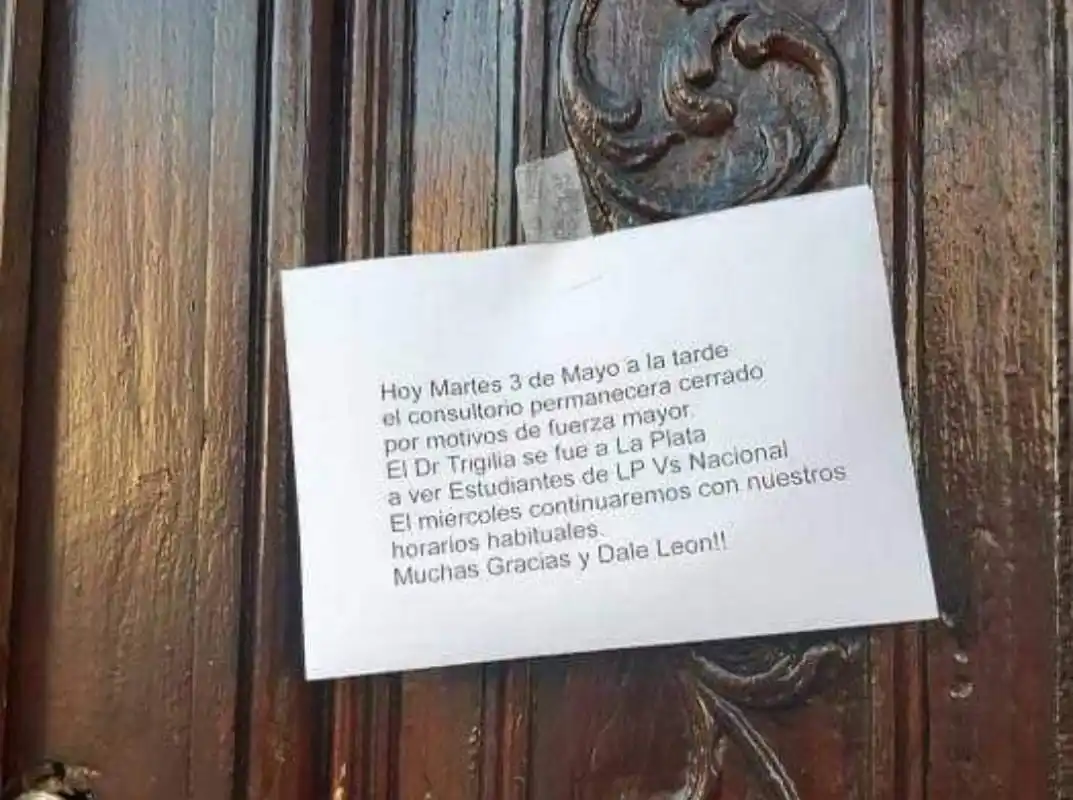 Hoy Martes 3 de Mayo a la tarde
el consultorio permanecera cerrado
por motivos de fuerza mayor.
El Dr Trigilia se fue a La Plata
a ver Estudiantes de LP Vs Nacional
El miercoles continuaremos con nuestros
horarios habituales.
Muchas Gracias y Dale Leon!!